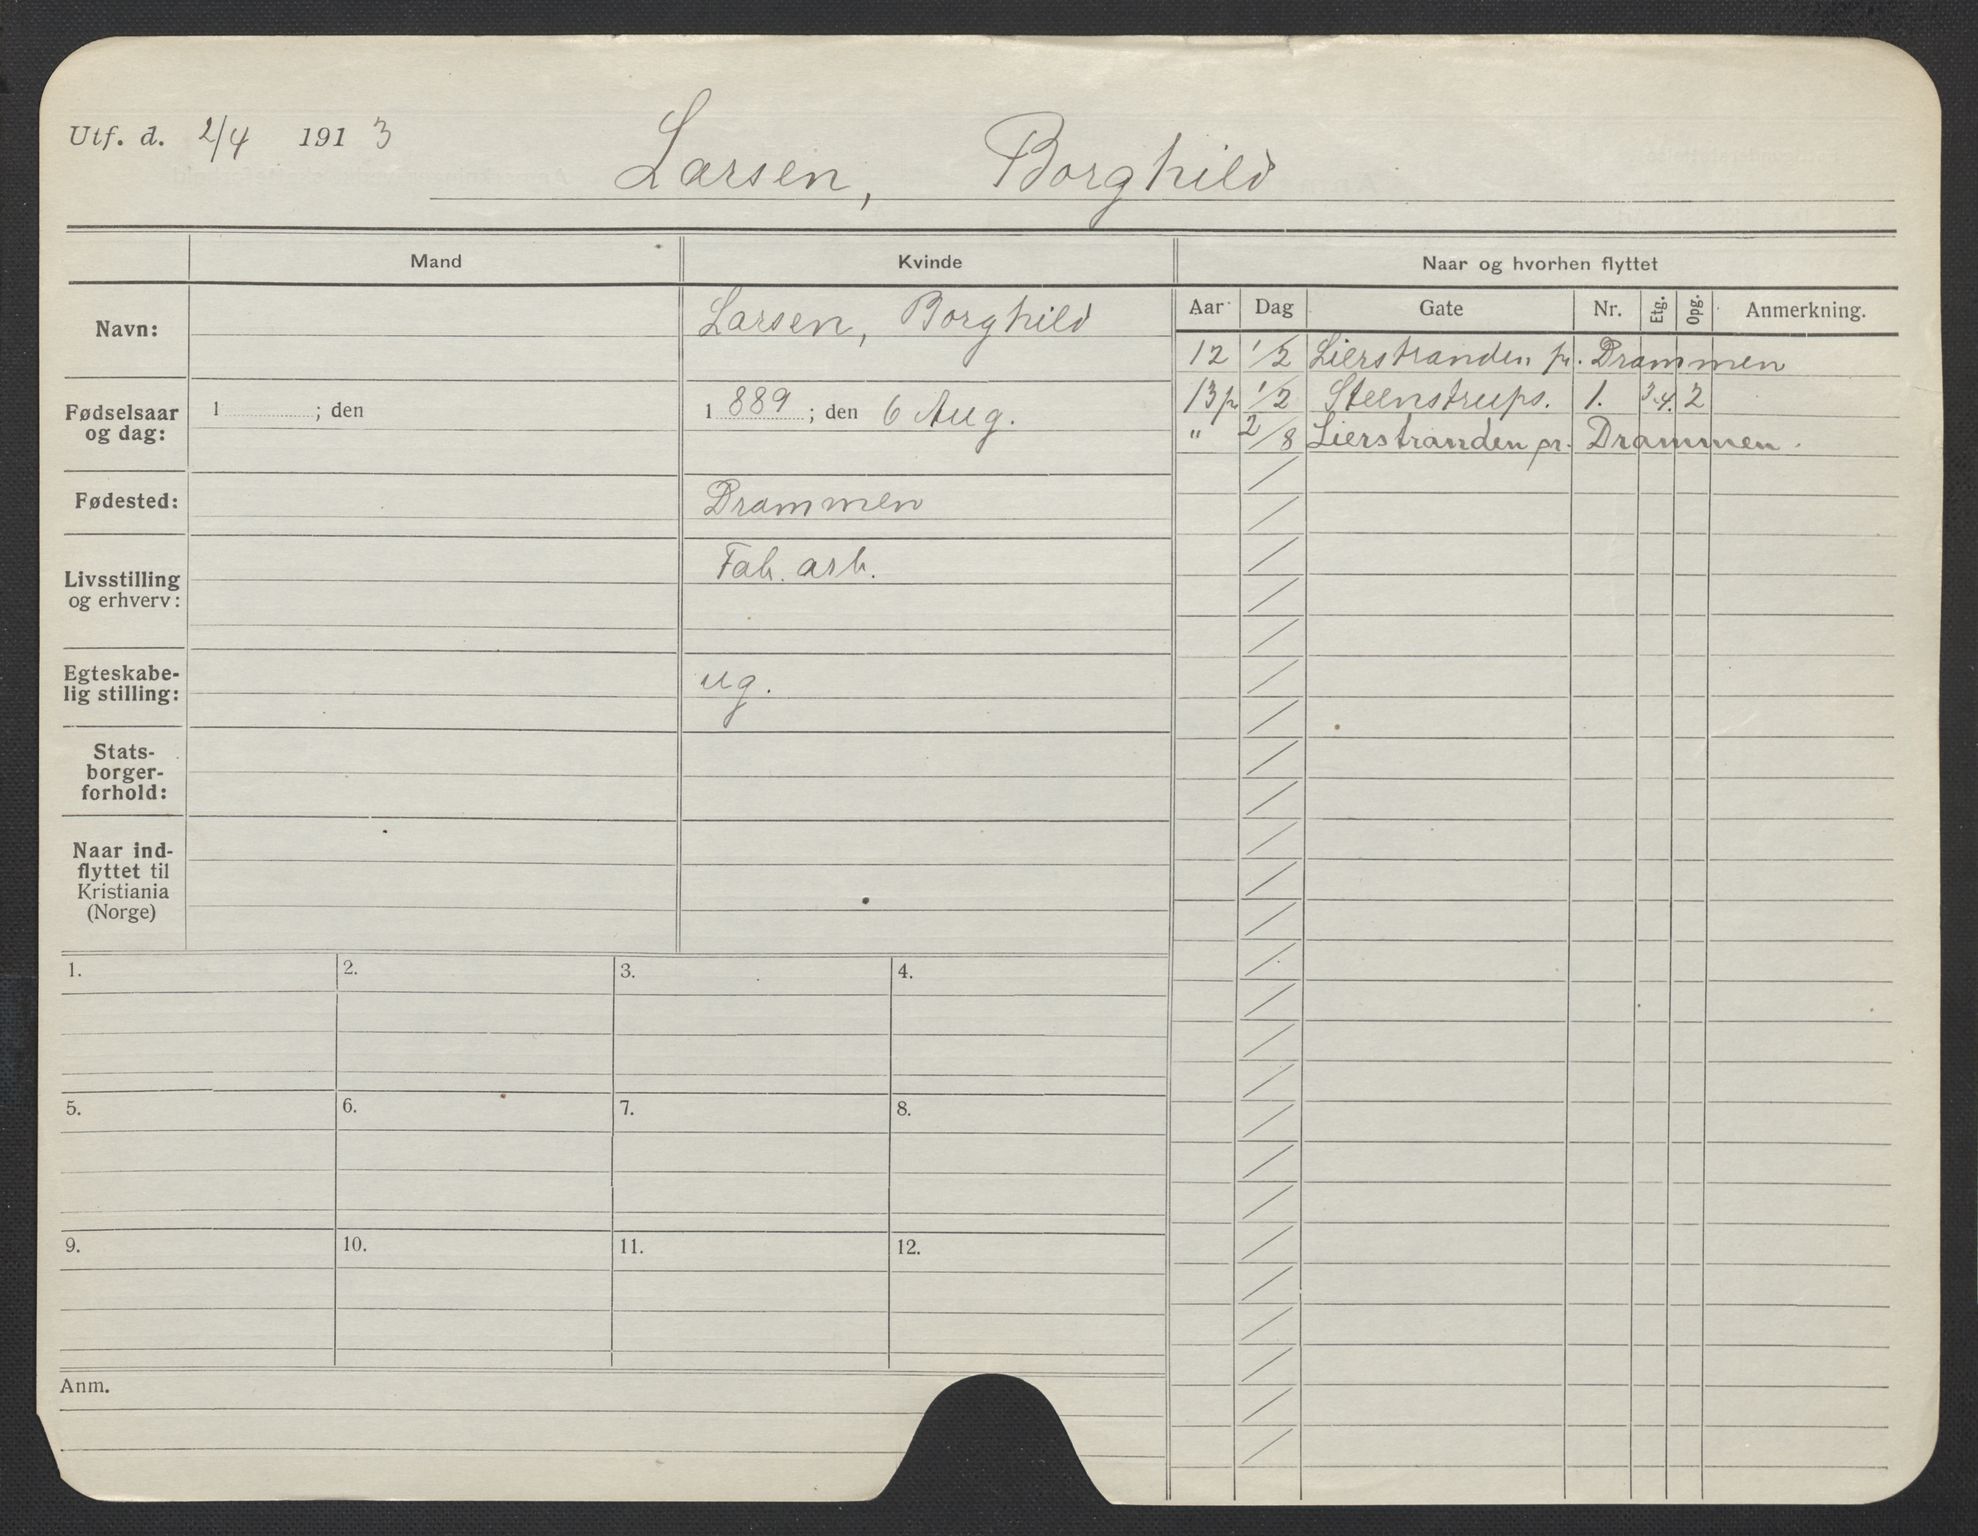 Utf. d. 2/4 1913
Larsen, Borghild
Mand Kvinde Naar og hvorhen flyttet
Aar Dag Gate Nr. Etg. Opg. Anmerkning.
Navn: Larsen, Borghild
12 1/2 Lierstranden pr. Drammen
Fødselsaar og dag: 1 ; den 1 889 ; den 6 Aug.
13 1/2 Steenstrups. 1. 3.4. 2
" 2/8 Lierstranden pr. Drammen.
Fødested: Drammen
Livsstilling Fab. arb.
og erhverv:
Egteskabe-
lig stilling: ug.
Stats-
borger-
forhold:
Naar ind-
flyttet til
Kristiania
(Norge)
1. 2. 3. 4.
5. 6. 7. 8.
9. 10. 11. 12.
Anm.